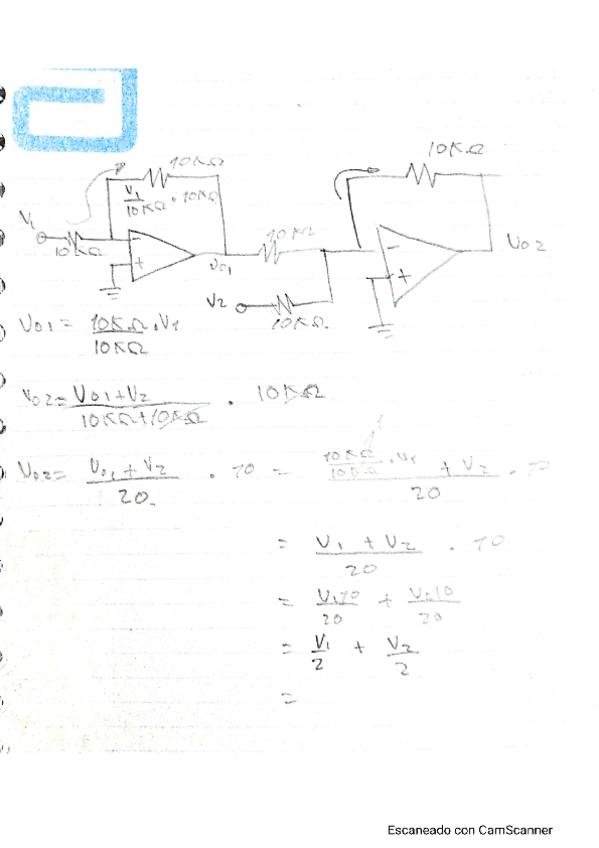 10KΩ
10KΩ
V1/10KΩ · 10KΩ
V1
10KΩ
-
+
10KΩ
-
+
Vo1
Vo2
V2
10KΩ
Vo1 = 10KΩ/10KΩ . V1
Vo2 = Vo1+V2/10KΩ+10KΩ . 10KΩ
Vo2 = Vo1 + V2/20 . 10 = 10KΩ/10KΩ . V1 + V2/20 . 10
= V1 + V2/20 . 10
= V1 10/20 + V2 10/20
= V1/2 + V2/2
=
Escaneado con CamScanner